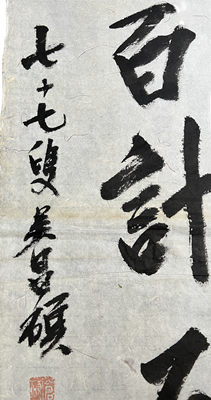 百計不
七十七叟吴昌碩